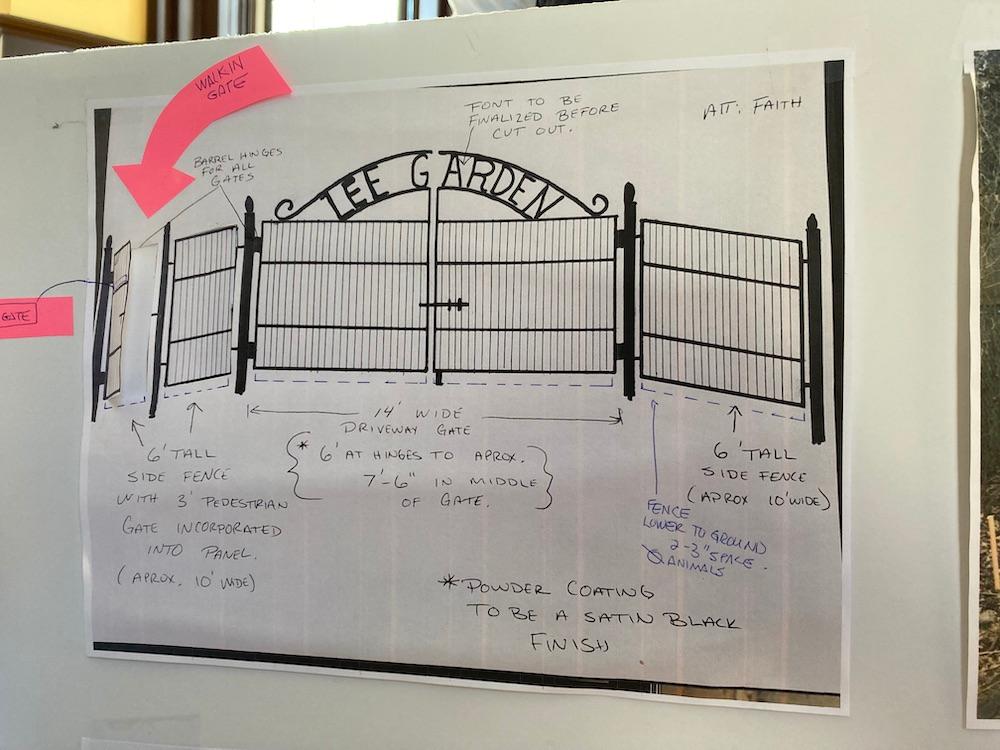 WALKIN
GATE
FONT TO BE
FINALIZED BEFORE
CUT OUT.
ATT: FAITH
BARREL HINGES
FOR ALL
GATES
LEE GARDEN
GATE
14' WIDE
DRIVEWAY GATE
* 6' AT HINGES TO APROX.
7'-6" IN MIDDLE
OF GATE.
6' TALL
SIDE FENCE
WITH 3' PEDESTRIAN
GATE INCORPORATED
INTO PANEL.
(APROX. 10' WIDE)
6' TALL
SIDE FENCE
(APROX 10' WIDE)
FENCE
LOWER TO GROUND
2-3" SPACE.
ANIMALS
*POWDER COATING
TO BE A SATIN BLACK
FINISH